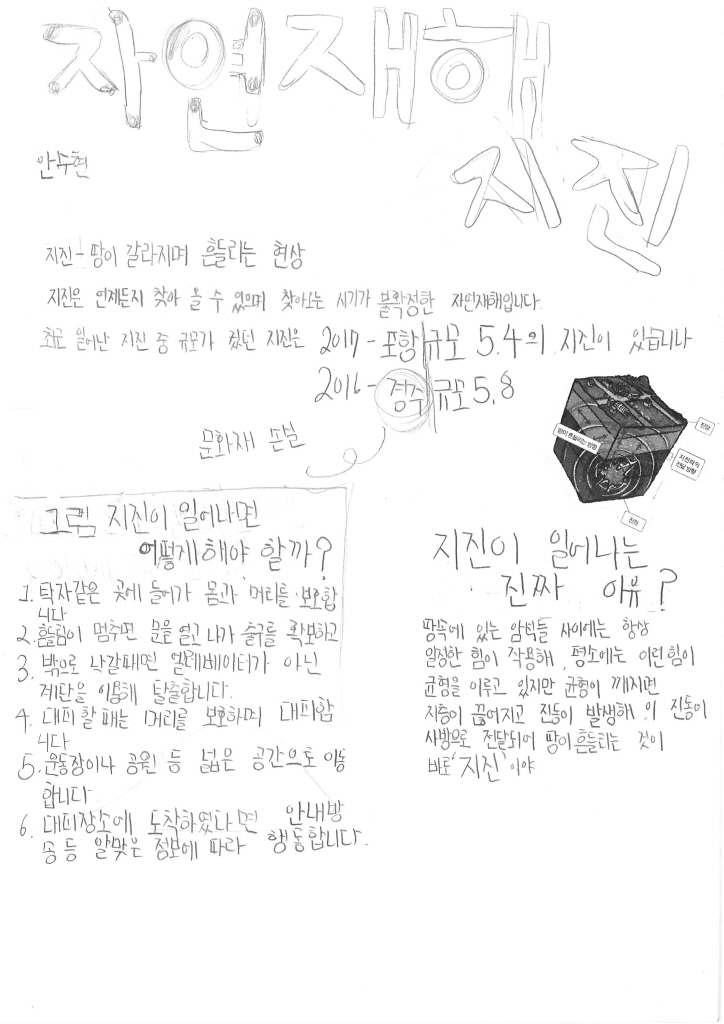 자연재해
지진
안수현
지진 - 땅이 갈라지며 흔들리는 현상
지진은 언제든지 찾아 올 수 있으며 찾아오는 시기가 불확정한 자연재해입니다.
최근 일어난 지진 중 규모가 컸던 지진은 2017 - 포항 규모 5.4의 지진이 있습니다
2016 - 경주 규모 5.8
문화재 손실
진앙
땅이 흔들리는 방향
지진파의
전달 방향
진원
그럼 지진이 일어나면
어떻게해야 할까?
1. 탁자같은 곳에 들어가 몸과 머리를 보호합
니다
2. 흔들림이 멈추면 문을 열고 나가 출구를 확보하고
3. 밖으로 나갈때면 엘레베이터가 아닌
계단을 이용해 탈출합니다.
4. 대피 할 때는 머리를 보호하며 대피합
니다
5. 운동장이나 공원 등 넓은 공간으로 이동
합니다
6. 대피장소에 도착하였다면 안내방
송 등 알맞은 정보에 따라 행동합니다.
지진이 일어나는
진짜 이유?
땅속에 있는 암석들 사이에는 항상
일정한 힘이 작용해, 평소에는 이런 힘이
균형을 이루고 있지만 균형이 깨지면
지층이 끊어지고 진동이 발생해, 의 진동이
사방으로 전달되어 땅이 흔들리는 것이
바로 '지진' 이야